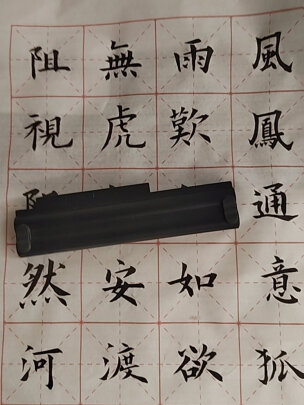 風雨無阻
鳳歎虎視
通
意如安然
狐欲渡河